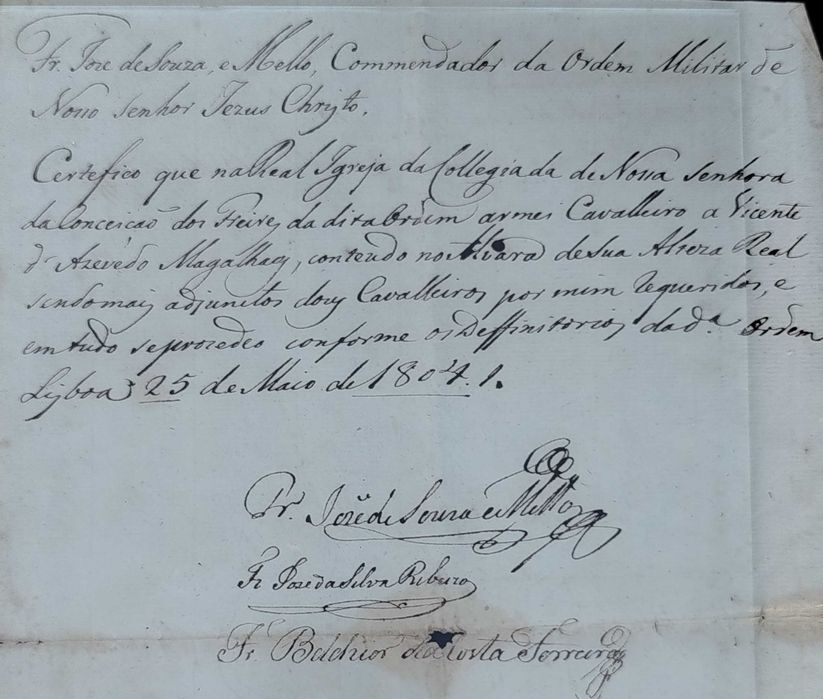 Fr. Joze de Souza, e Mello, Commendador da Ordem Militar de
Nosso senhor Jezus Christo.
Certefico que na Real Igreja da Collegiada de Nossa senhora
da Conceicaõ dos Freires da dita Ordem armei Cavalleiro a Vicente
d' Azevedo Magalhaes, conteudo no Alvara de Sua Alteza Real
sendo mais adjunctos dous Cavalleiros por mim requeridos, e
em tudo se procedeo conforme os Deffinitorios da d.ª Ordem
Lisboa 25 de Maio de 1804.
Fr. Joze de Souza e Mello
Fr Joze da Silva Ribeiro
Fr. Belchior da Costa Ferreira